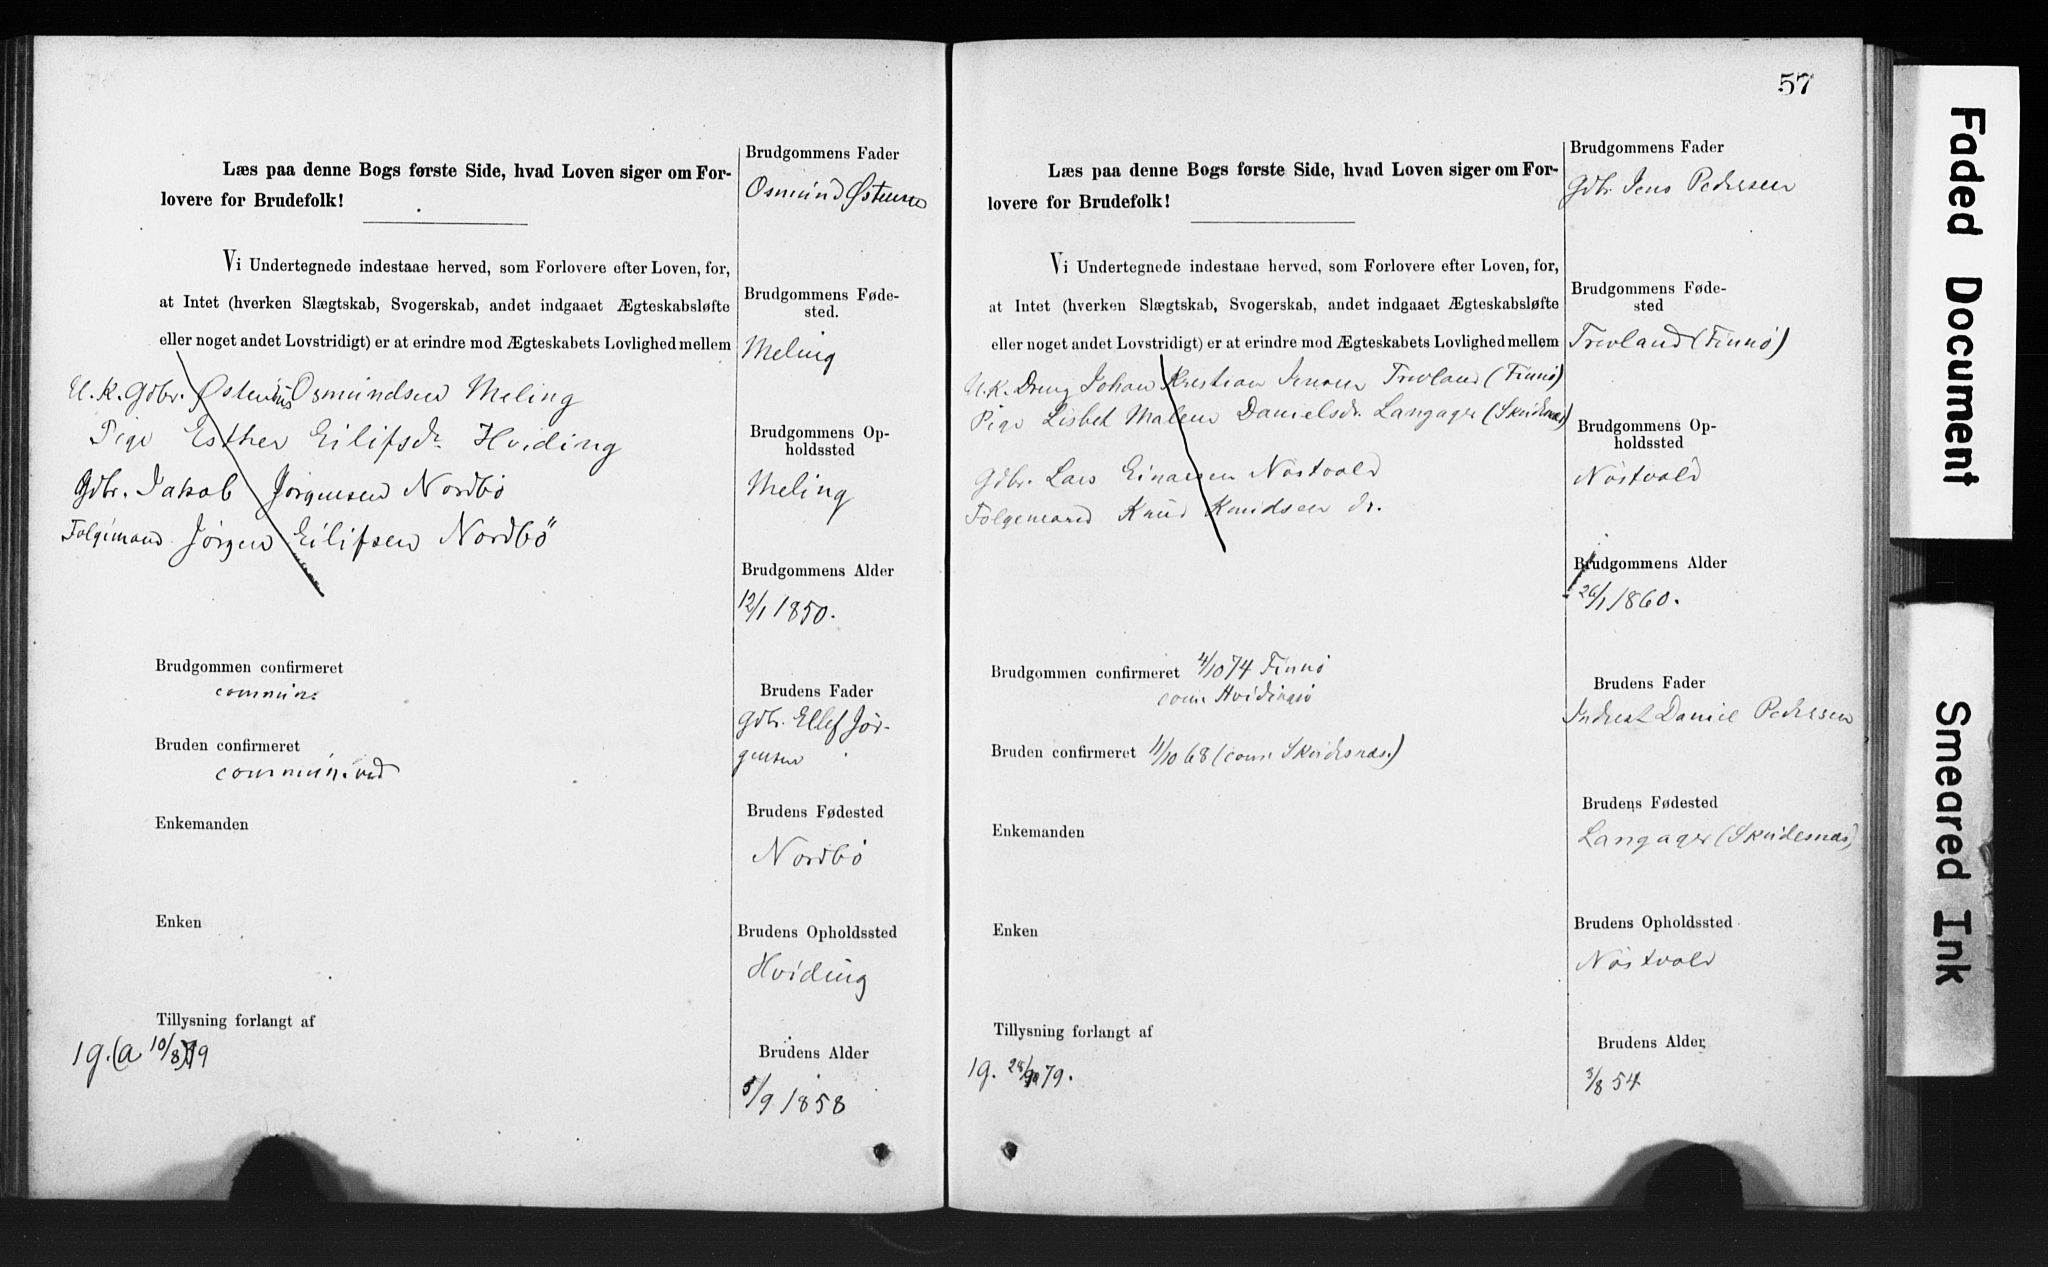 Læs paa denne Bogs første Side, hvad Loven siger om For-
lovere for Brudefolk!
Vi Undertegnede indestaae herved, som Forlovere efter Loven, for,
at Intet (hverken Slægtskab, Svogerskab, andet indgaaet Ægteskabsløfte
eller noget andet Lovstridigt) er at erindre mod Ægteskabets Lovlighed mellem
U. K. Gdbr. Østensius Osmundsen Meling
Pige Esther Eilifsdr. Hviding
Gdbr. Jakob Jørgensen Nordbø
Følgemand Jørgen Eilifsen Nordbö
Brudgommen confirmeret
commun.
Bruden confirmeret
commun. ved
Enkemanden
Enken
Tillysning forlangt af
1 g. (a 10/8) 79
Brudgommens Fader
Osmund Østensen
Brudgommens Føde-
sted.
Meling
Brudgommens Op-
holdssted
Meling
Brudgommens Alder
12/1 1850.
Brudens Fader
Gdbr. Ellef Jør-
gensen
Brudens Fødested
Nordbø
Brudens Opholdssted
Hviding
Brudens Alder
5/9 1858
57
Læs paa denne Bogs første Side, hvad Loven siger om For-
lovere for Brudefolk!
Vi Undertegnede indestaae herved, som Forlovere efter Loven, for,
at Intet (hverken Slægtskab, Svogerskab, andet indgaaet Ægteskabsløfte
eller noget andet Lovstridigt) er at erindre mod Ægteskabets Lovlighed mellem
U. K. Dreng Johan Kristian Jensen Trevland (Finnø)
Pige Lisbet Malene Danielsdr. Langager (Skudesnæs)
Gdbr. Lars Einarsen Nøstvold
Følgemand Knud Knudsen dr.
Brudgommen confirmeret 4/10 74 Finnø
com Hvidingsø
Bruden confirmeret 11/10 68 (com Skudesnæs.)
Enkemanden
Enken
Tillysning forlangt af
1 g. 79.
Brudgommens Fader
Gdbr. Jens Pedersen
Brudgommens Føde-
sted
Trevland (Finnø)
Brudgommens Op-
holdssted
Nøstvold
Brudgommens Alder
26/1 1860.
Brudens Fader
Inderst Daniel Pedersen
Brudens Fødested
Langager (Skudesnæs)
Brudens Opholdssted
Nøstvold
Brudens Alder
3/8 54
Faded Document
Smeared Ink